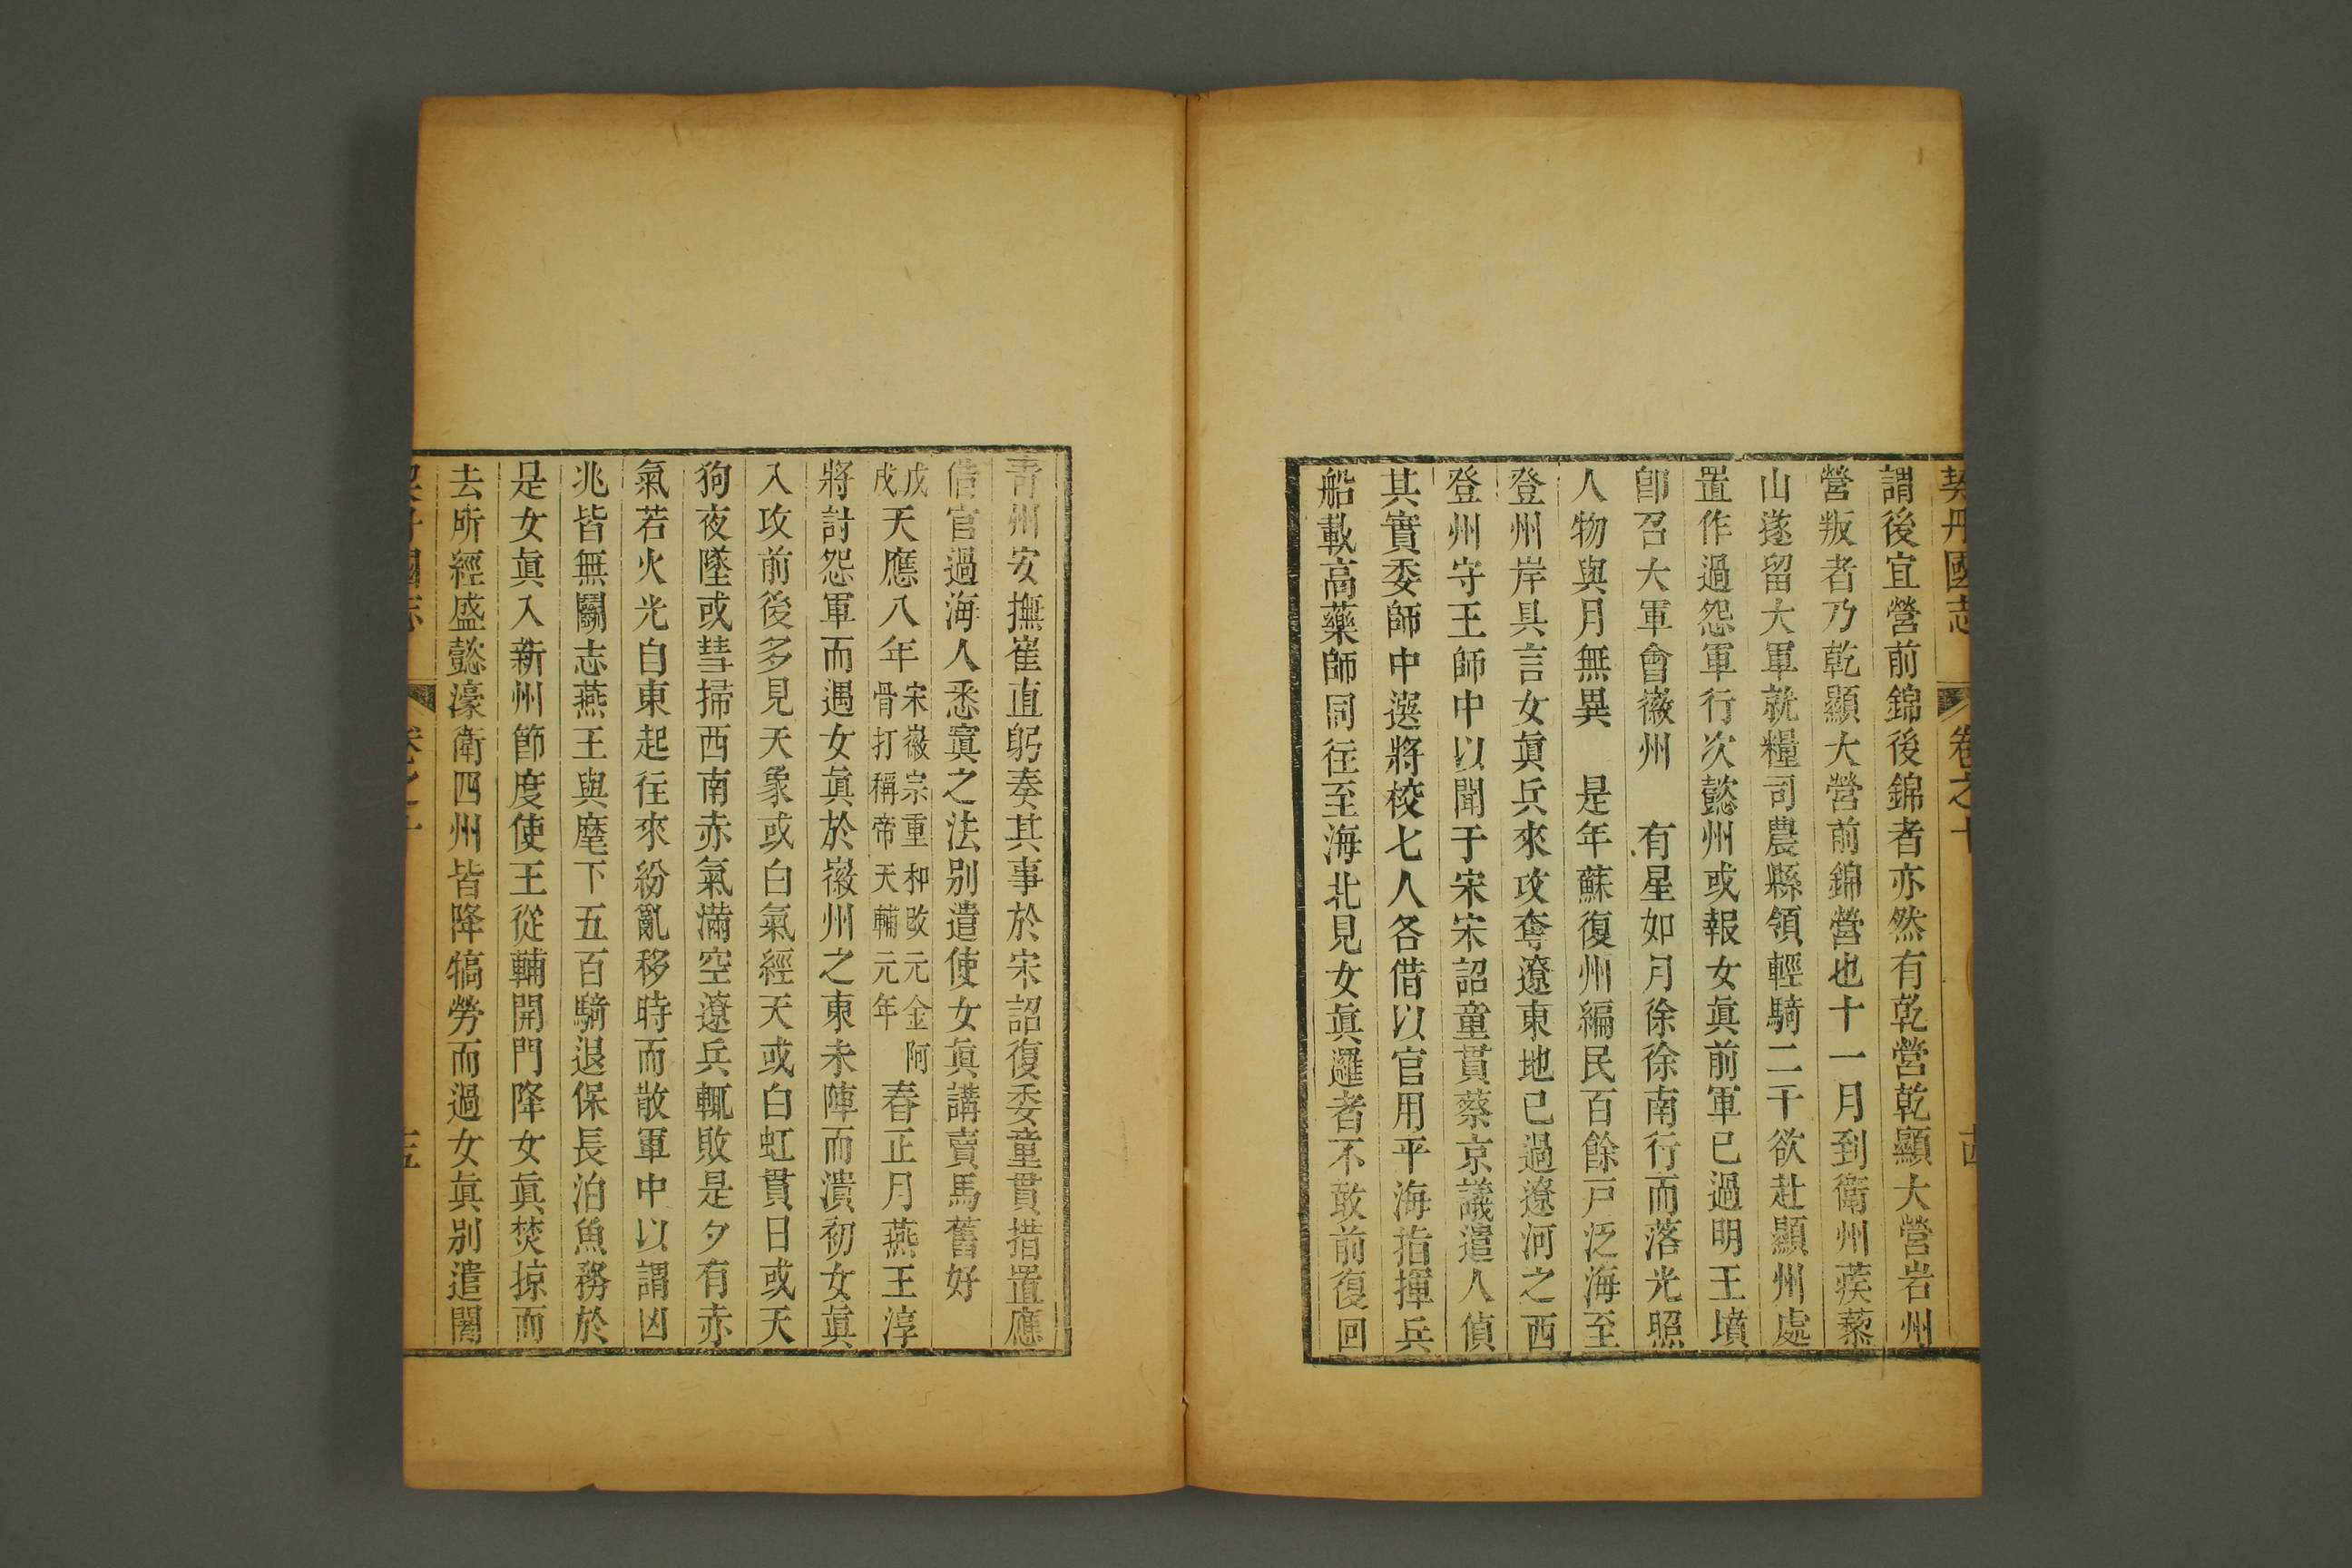 契丹國志 卷之十
謂後宜營前錦後錦者亦然有乾營乾顯大營岩州
營叛者乃乾顯大營前錦營也十一月到衛州蒺藜
山遂留大軍就糧司農縣領輕騎二千欲赴顯州處
置作過怨軍行次懿州或報女眞前軍已過明王墳
卽召大軍會徽州　有星如月徐徐南行而落光照
人物與月無異　是年蘇復州編民百餘戸泛海至
登州岸具言女眞兵來攻奪遼東地已過遼河之西
登州守王師中以聞于宋宋詔童貫蔡京議遣人偵
其實委師中選將校七人各借以官用平海指揮兵
船載高藥師同往至海北見女眞邏者不敢前復回
青州安撫崔直躬奏其事於宋詔復委童貫措置應
借官過海人悉寘之法别遣使女眞講賣馬舊好
戊戌天應八年宋徽宗重和改元金阿骨打稱帝天輔元年春正月燕王淳
將討怨軍而遇女眞於徽州之東未陣而潰初女眞
入攻前後多見天象或白氣經天或白虹貫日或天
狗夜墜或彗掃西南赤氣滿空遼兵輒敗是夕有赤
氣若火光自東起往來紛亂移時而散軍中以謂凶
兆皆無鬭志燕王與麾下五百騎退保長泊魚務於
是女眞入新州節度使王從輔開門降女眞焚掠而
去所經盛懿濠衛四州皆降犒勞而過女眞别遣闍